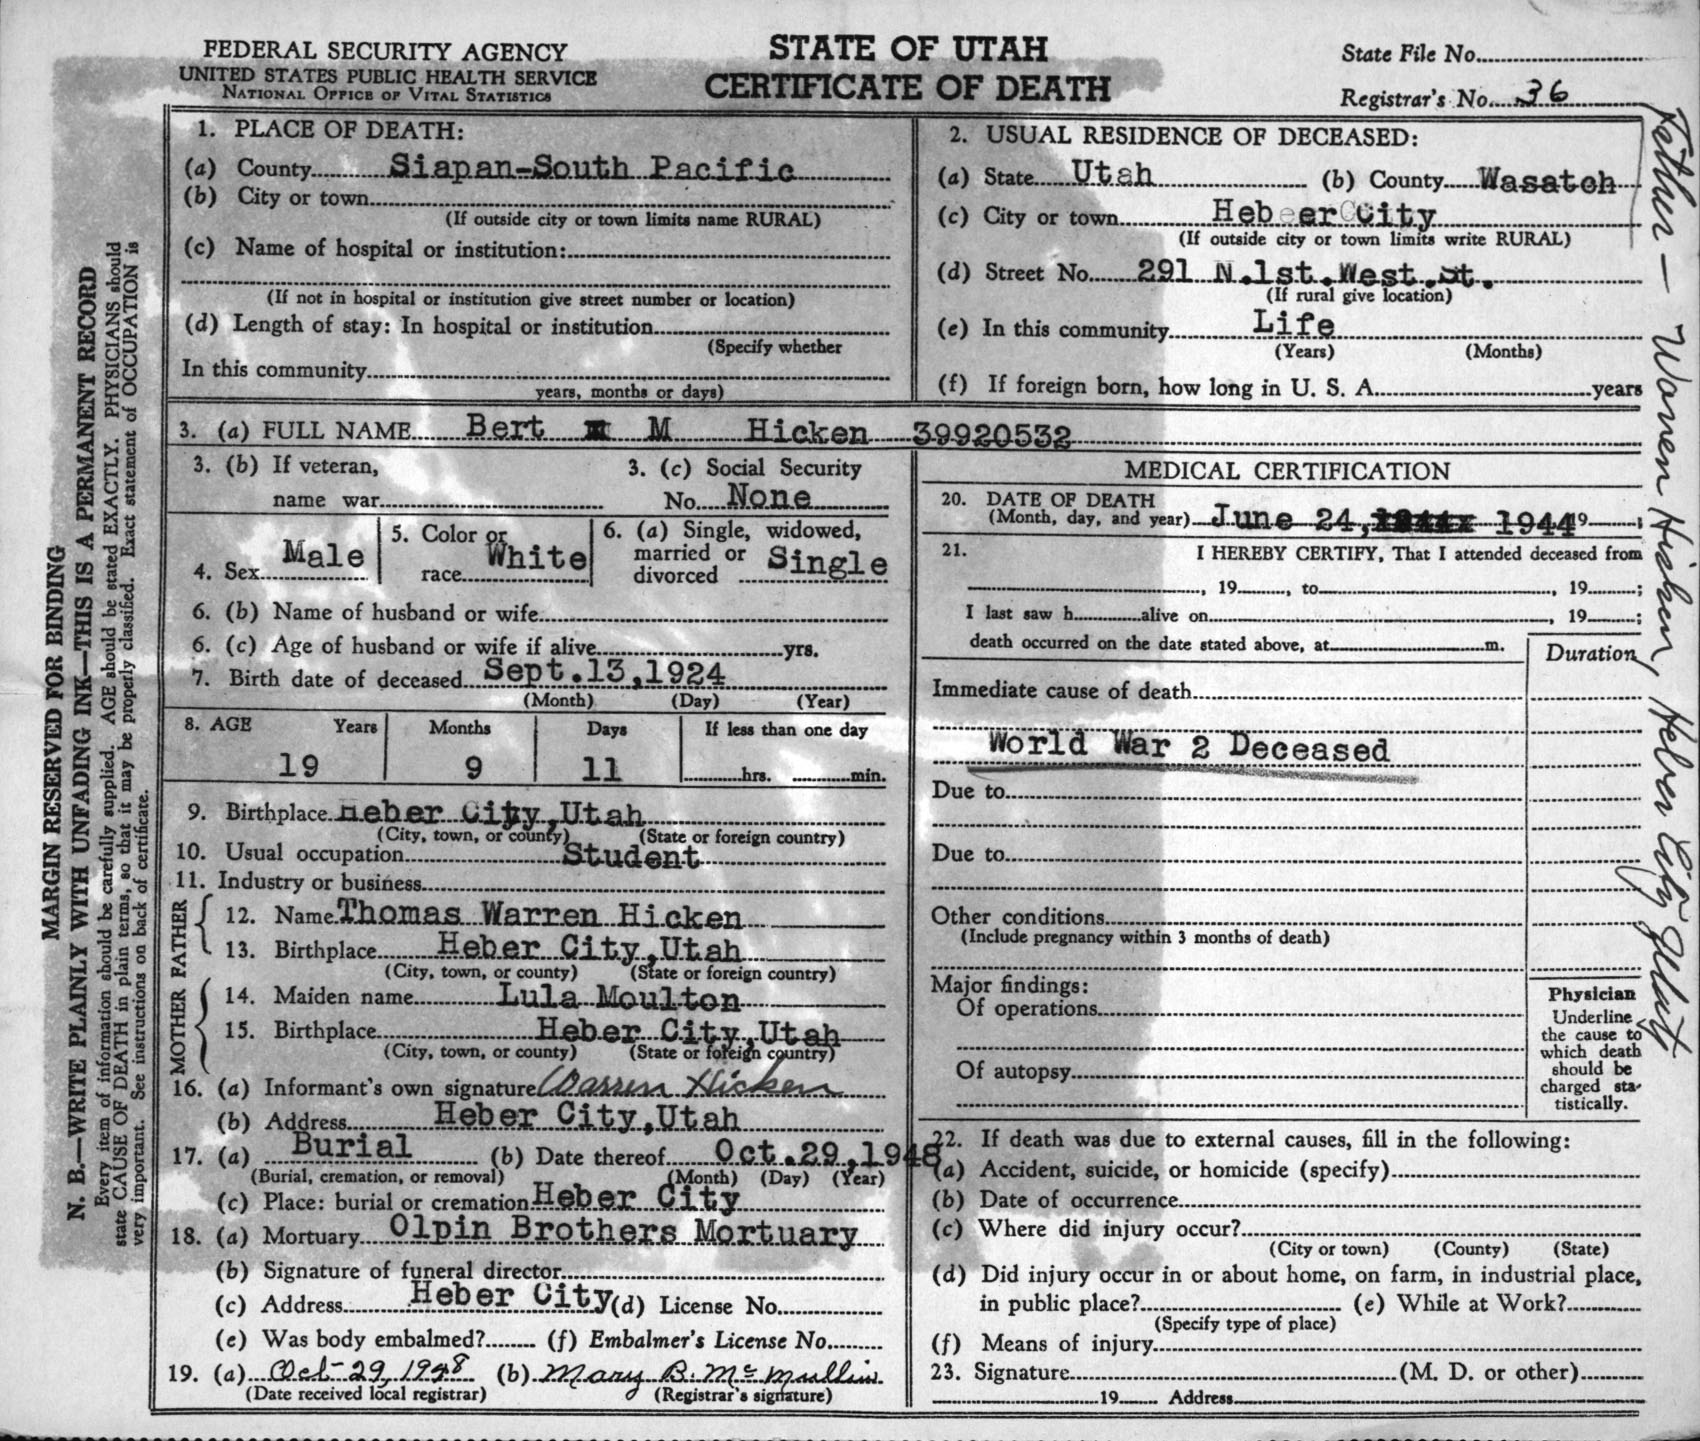 FEDERAL SECURITY AGENCY
UNITED STATES PUBLIC HEALTH SERVICE
NATIONAL OFFICE OF VITAL STATISTICS
STATE OF UTAH
CERTIFICATE OF DEATH
State File No.
Registrar's No. 36
MARGIN RESERVED FOR BINDING
N. B.—WRITE PLAINLY WITH UNFADING INK—THIS IS A PERMANENT RECORD
Every item of information should be carefully supplied. AGE should be stated EXACTLY. PHYSICIANS should
state CAUSE OF DEATH in plain terms, so that it may be properly classified. Exact statement of OCCUPATION is
very important. See instructions on back of certificate.
1. PLACE OF DEATH:
(a) County Siapan-South Pacific
(b) City or town
(If outside city or town limits name RURAL)
(c) Name of hospital or institution:
(If not in hospital or institution give street number or location)
(d) Length of stay: In hospital or institution
(Specify whether
In this community
years, months or days)
2. USUAL RESIDENCE OF DECEASED:
(a) State Utah (b) County Wasatch
(c) City or town Heber City
(If outside city or town limits write RURAL)
(d) Street No. 291 N.1st.West.St.
(If rural give location)
(e) In this community Life
(Years) (Months)
(f) If foreign born, how long in U. S. A. years
3. (a) FULL NAME Bert M Hicken 39920532
3. (b) If veteran,
name war
3. (c) Social Security
No. None
4. Sex Male
5. Color or
race White
6. (a) Single, widowed,
married or
divorced Single
6. (b) Name of husband or wife
6. (c) Age of husband or wife if alive yrs.
7. Birth date of deceased Sept.13,1924
(Month) (Day) (Year)
8. AGE Years Months Days If less than one day
19 9 11 hrs. min.
9. Birthplace Heber City,Utah
(City, town, or county) (State or foreign country)
10. Usual occupation Student
11. Industry or business
FATHER
12. Name Thomas Warren Hicken
13. Birthplace Heber City,Utah
(City, town, or county) (State or foreign country)
MOTHER
14. Maiden name Lula Moulton
15. Birthplace Heber City,Utah
(City, town, or county) (State or foreign country)
16. (a) Informant's own signature Warren Hicken
(b) Address Heber City,Utah
17. (a) Burial (b) Date thereof Oct.29,1948
(Burial, cremation, or removal) (Month) (Day) (Year)
(c) Place: burial or cremation Heber City
18. (a) Mortuary Olpin Brothers Mortuary
(b) Signature of funeral director
(c) Address Heber City (d) License No.
(e) Was body embalmed? (f) Embalmer's License No.
19. (a) Oct-29, 1948 (b) Mary B. McMullin
(Date received local registrar) (Registrar's signature)
MEDICAL CERTIFICATION
20. DATE OF DEATH
(Month, day, and year) June 24, 1944 19 ;
21. I HEREBY CERTIFY, That I attended deceased from
, 19 , to , 19 ;
I last saw h alive on , 19 ;
death occurred on the date stated above, at m.
Duration
Immediate cause of death
World War 2 Deceased
Due to
Due to
Other conditions
(Include pregnancy within 3 months of death)
Major findings:
Of operations
Of autopsy
Physician
Underline
the cause to
which death
should be
charged sta-
tistically.
22. If death was due to external causes, fill in the following:
(a) Accident, suicide, or homicide (specify)
(b) Date of occurrence
(c) Where did injury occur?
(City or town) (County) (State)
(d) Did injury occur in or about home, on farm, in industrial place,
in public place? (e) While at Work?
(Specify type of place)
(f) Means of injury
23. Signature (M. D. or other)
19 Address
Father — Warren Hicken, Heber City Utah